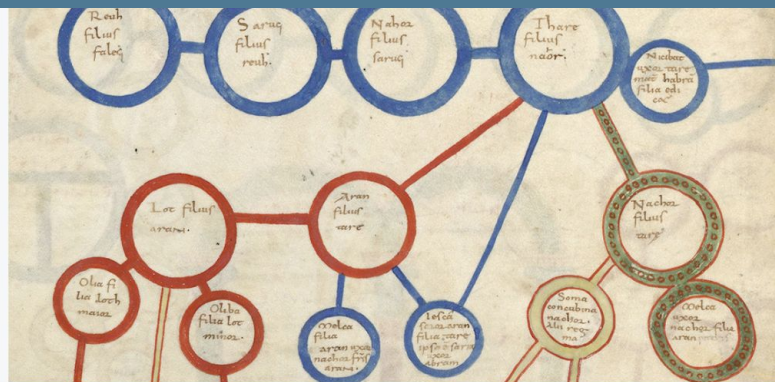 Reub
filius
faleg
Saruq
filius
reub.
Nahor
filius
saruq
Thare
filius
naor.
uxor tare
filia edi
Lot filius
aram.
Aran
filius
tare
Nachor
filius
tare
Olla fi
lia loth
maior
Oliba
filia lot
minor.
Melca
filia
aran uxor
nachor fris
aram.
Iesca
soror aran
filia tare
ipsa e sara
uxor
abram
Soma
concubina
nachor.
ma
Melca
uxor
nachor filia
aran